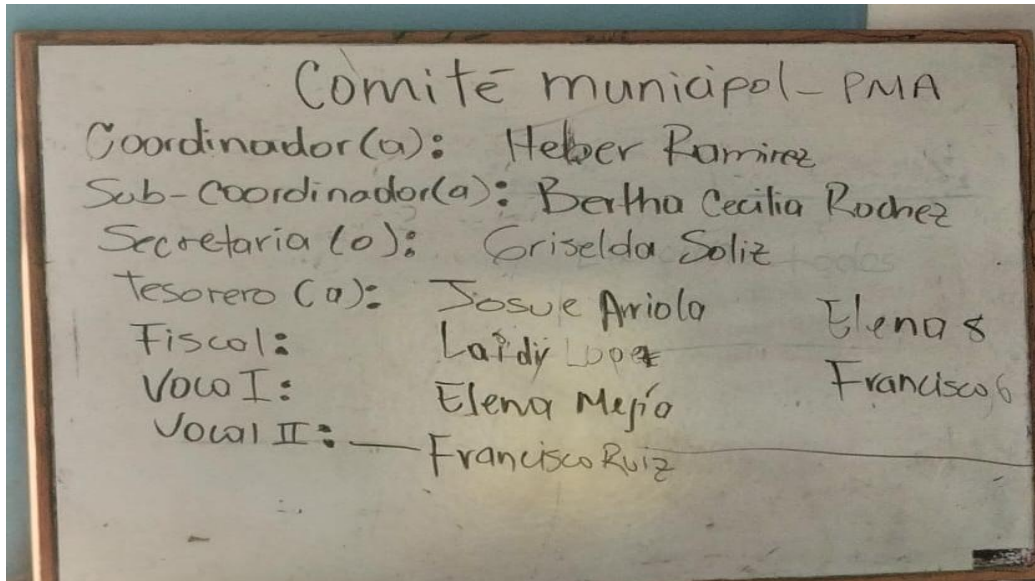 Comité municipal - PMA
Coordinador(a): Heber Ramirez
Sub-Coordinador(a): Bertha Cecilia Rochez
Secretaria (o): Griselda Soliz
Tesorero (a): Josue Arriola
Elena 8
Fiscal: Laidy Lopez
Francisco 6
Voca I: Elena Mejía
Vocal II: Francisco Ruiz